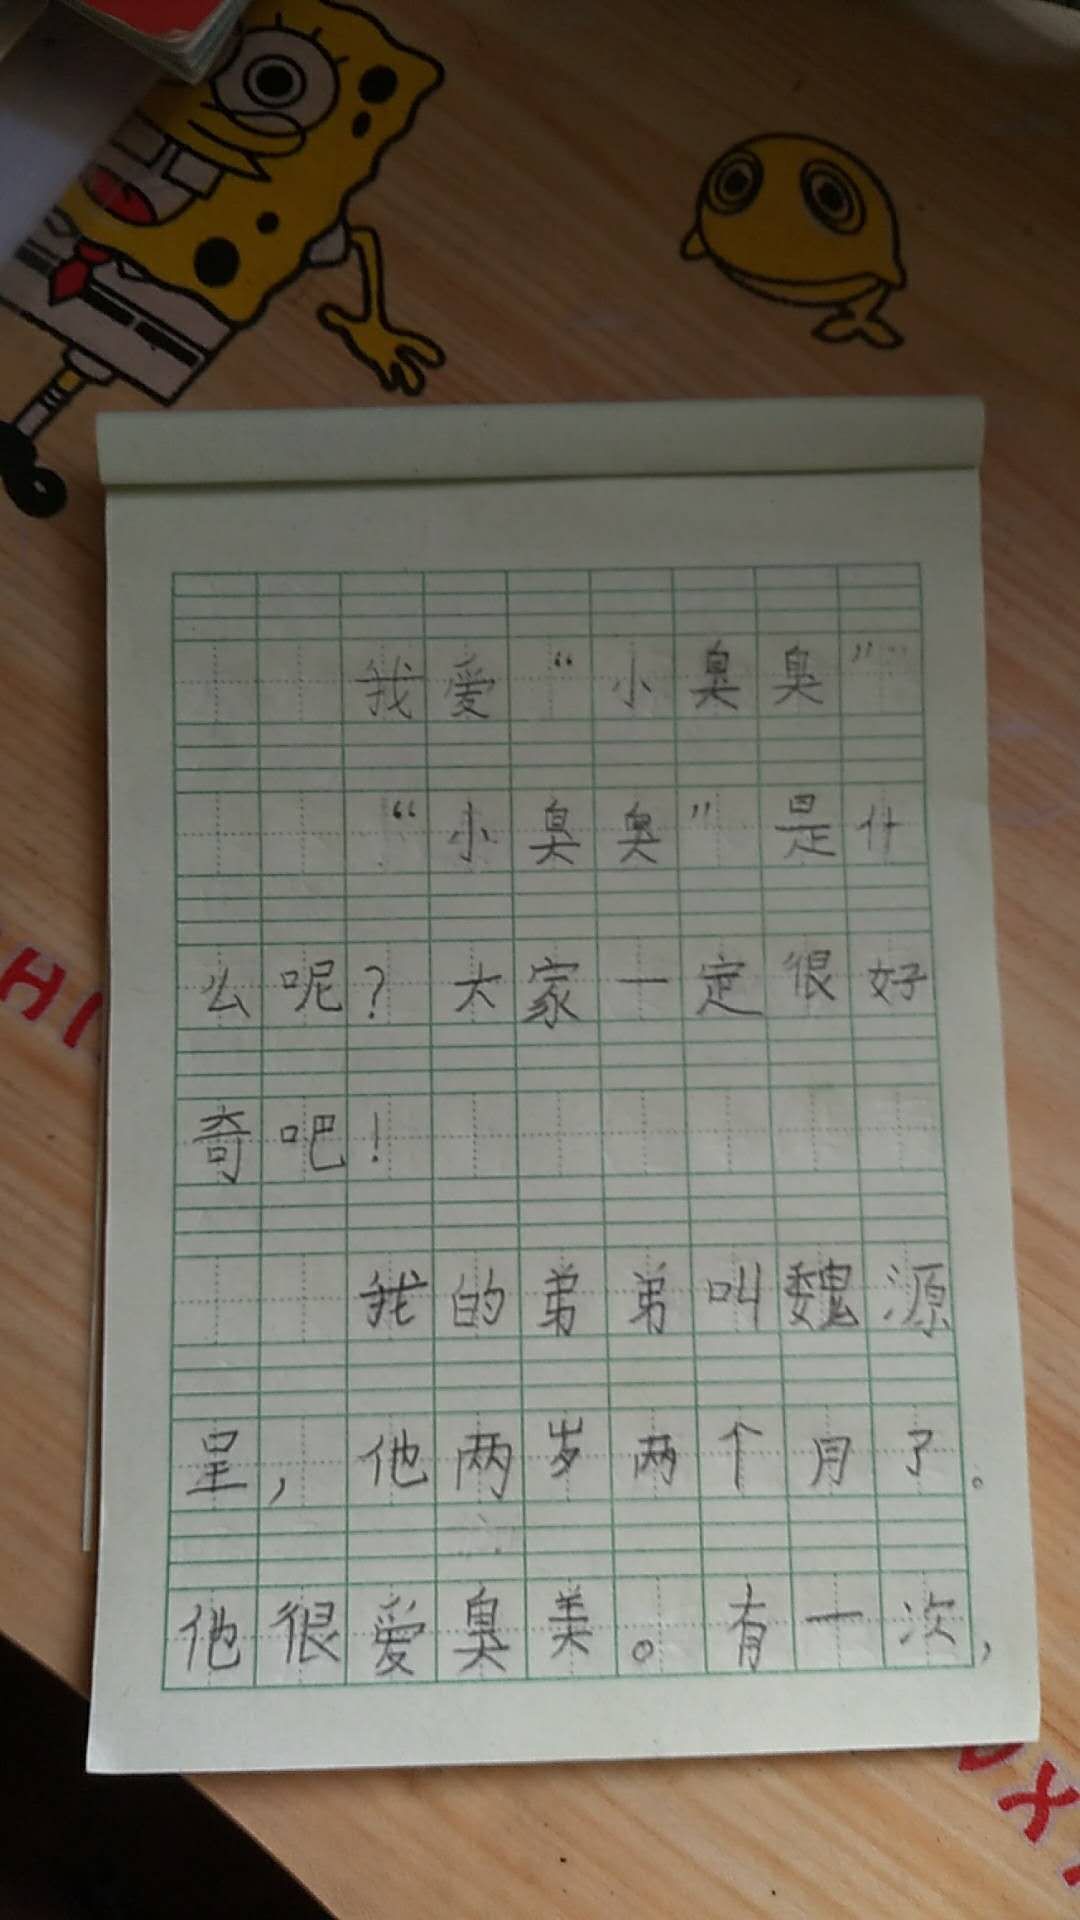 我爱“小臭臭”
“小臭臭”是什
么呢?大家一定很好
奇吧!
我的弟弟叫魏源
呈,他两岁两个月了。
他很爱臭美。有一次,
HI